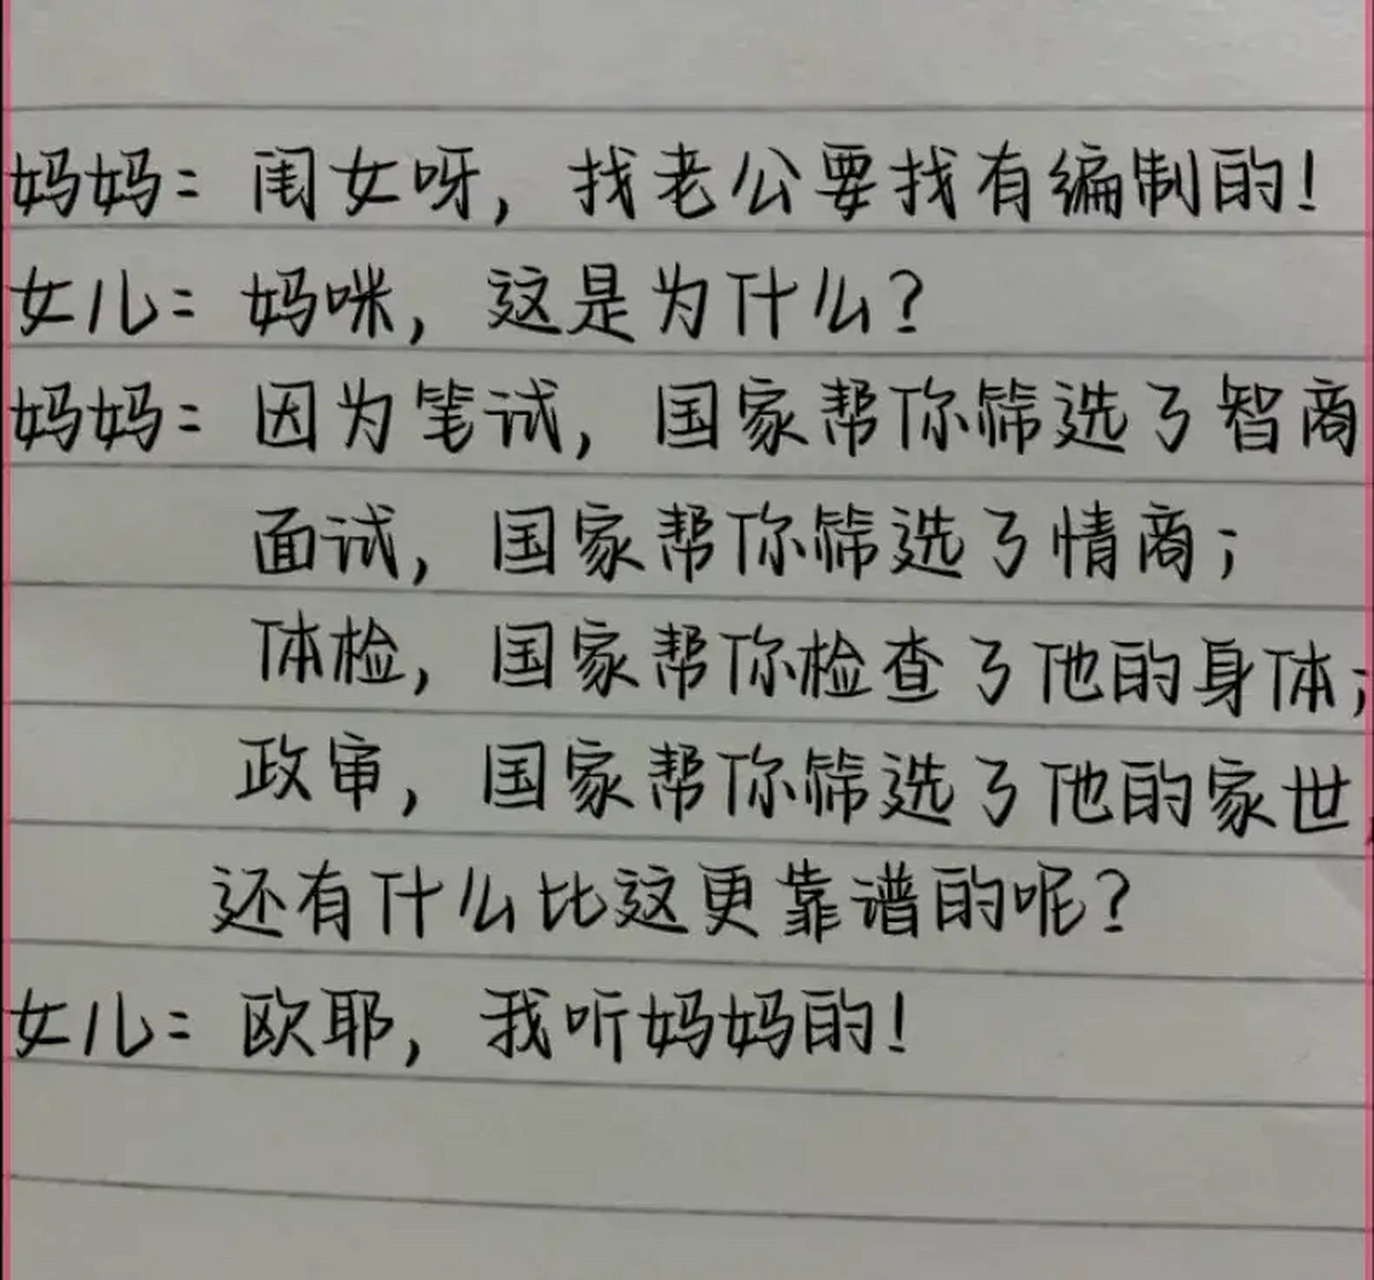 妈妈：闺女呀，找老公要找有编制的！
女儿：妈咪，这是为什么？
妈妈：因为笔试，国家帮你筛选了智商
面试，国家帮你筛选了情商；
体检，国家帮你检查了他的身体；
政审，国家帮你筛选了他的家世，
还有什么比这更靠谱的呢？
女儿：欧耶，我听妈妈的！